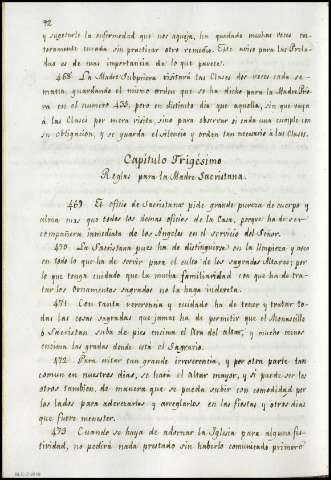 92
y sugetarle la enfermedad que nos aqueja, ha quedado muchas veces en-
teramente curada sin practicar otro remedio. Este aviso para las Prela-
das es de mas importancia de lo que parece.
468. La Madre Subpriora visitará las Clases dos veces cada se-
mana, guardando el mismo orden que se ha dicho para la Madre Prio-
ra en el numero 433, pero en distinto dia que aquella, sin que vaya
á las Clases por mera visita, sino para observar si cada una cumple con
su obligacion, y se guarda el silencio y orden tan necesario á las Clases.
Capítulo Trigésimo
Reglas para la Madre Sacristana.
469 El oficio de Sacristana pide grande pureza de cuerpo y
alma mas que todos los demas oficios de la Casa, porque ha de ser
compañera inmediata de los Angeles en el servicio del Señor.
470 La Sacristana pues ha de distinguirse en la limpieza y aseo
en todo lo que ha de servir para el culto de los sagrados Altares; por
lo que tenga cuidado que la mucha familiaridad con que ha de tra-
tar los ornamentos sagrados no la haga indevota.
471 Con tanta reverencia y cuidado ha de tener y tratar to-
das las cosas sagradas que jamas ha de permitir que el Monacillo
ó Sacristan suba de pies encima el Ara del altar, y mucho menos
encima las gradas donde está el Sagrario.
472 Para evitar tan grande irreverencia, y por otra parte tan
comun en nuestros dias, se hará el Altar mayor, y si puede ser los
otros tambien, de manera que se pueda subir con comodidad por
los lados para aderezarlos y arreglarlos en las fiestas y otros dias
que fuere menester.
473 Cuando se haya de adornar la Iglesia para alguna fes-
tividad, no pedirá nada prestado sin haberlo comunicado primero